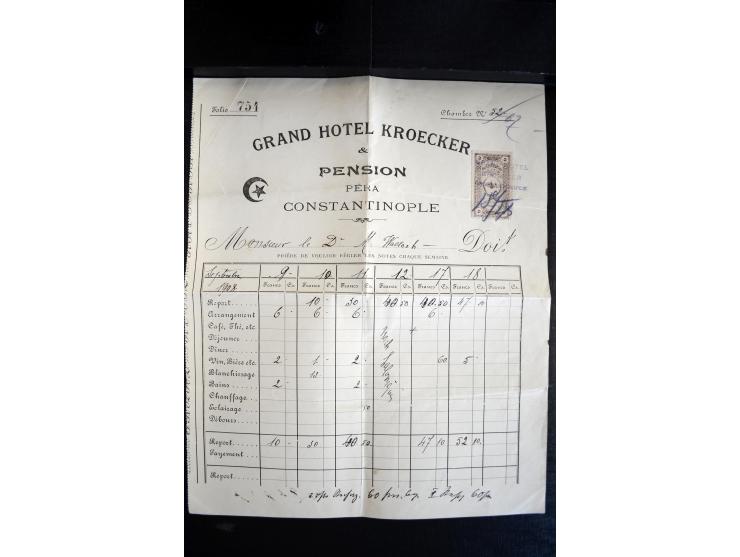 Folio 754
Chambre No 52/67
GRAND HOTEL KROECKER
&
PENSION
PÉRA
CONSTANTINOPLE
Monsieur le Dr M. Wallach Doit
PRIÈRE DE VOULOIR RÉGLER LES NOTES CHAQUE SEMAINE
Septembre 1908 9 10 11 12 17 18
Francs Cs. Francs Cs. Francs Cs. Francs Cs. Francs Cs. Francs Cs. Francs Cs.
Report 10 - 30 40 50 40 50 47 10
Arrangement 6 - 6 - 6 - 6 -
Café, Thé, etc
Déjeuner
Dîner
Vin, Bière etc. 2 - 2 - 2 - 60 5 -
Blanchissage 12 -
Bains 2 - 2 -
Chauffage
Eclairage 50
Débours
Report 10 - 30 40 50 47 10 52 10
Payement
Report
60 frs.